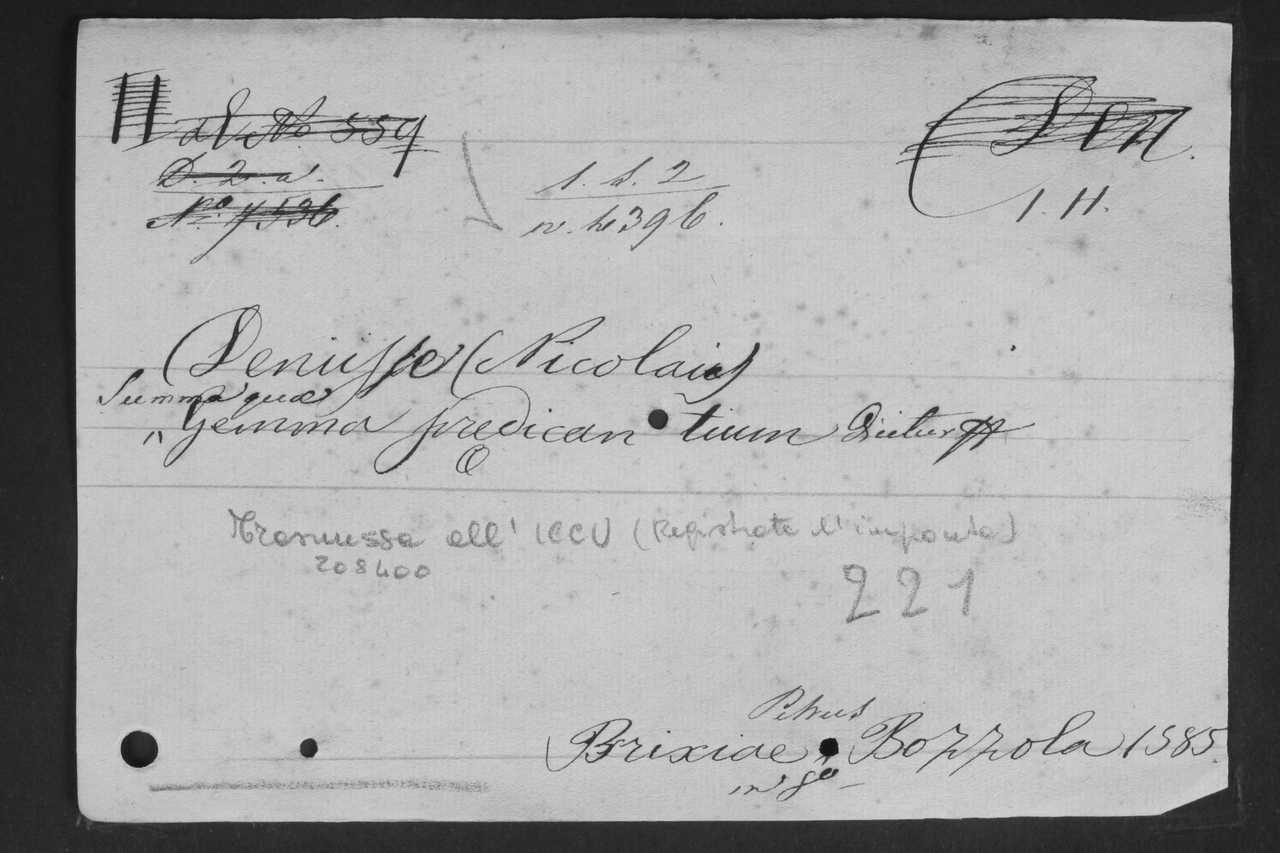 al No 559
Den
D. 2. a.
No. 7536.
1. d. 2
n. 4396.
1. H.
Denisse (Nicolaus)
Summa quae
"Gemma predicantium Dicitur"
Trasmessa all' ICCU (Registrate l'impronta)
208400
221
Petrus
Brixiae Bozzola 1585
in 8º